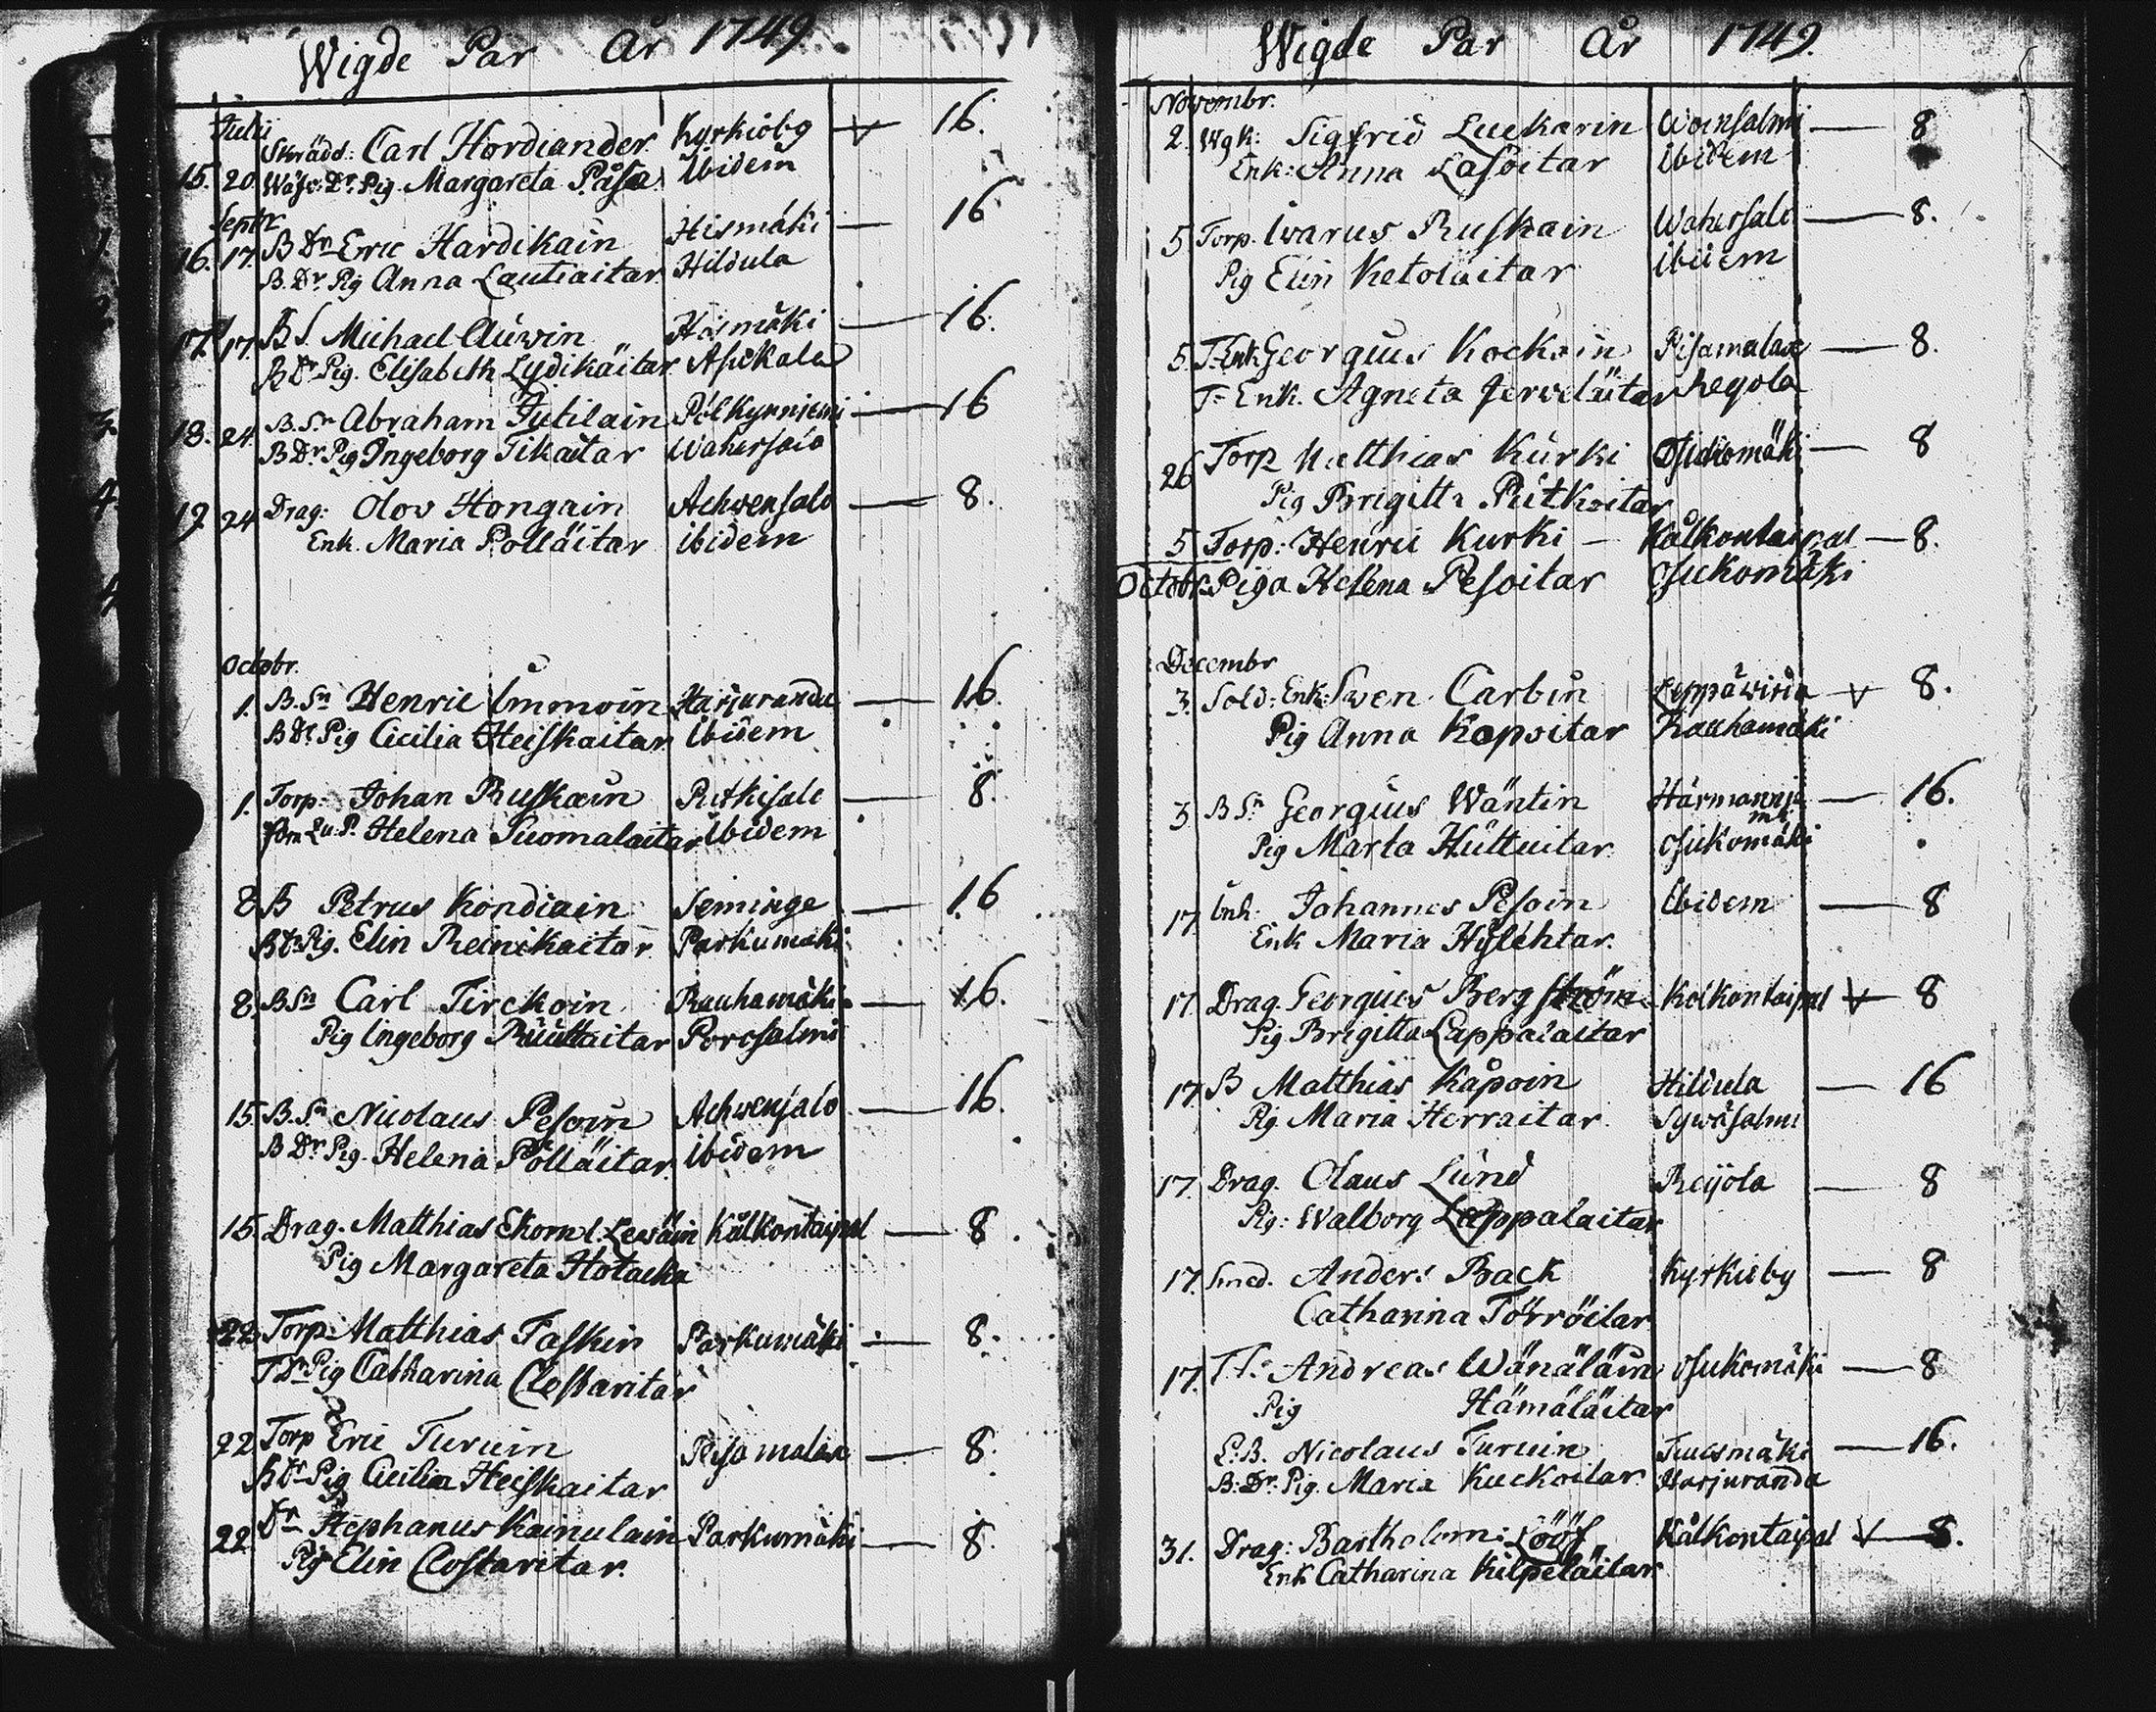 Wigde Par År 1749.
Julii
Skrädd: Carl Hordiander Kyrkioby 16.
15. 20. Pig. Margareta Påsa ibidem
Septr
16. 17. B Sn Eric Hardikain Hismäki — 16
B. Dr. Pig Anna Lautiaitar Hildula
17. 17. B S. Michael Auwin Hismäki — 16.
B Dr Pig. Elisabeth Lydikäitar
18. 24. B. Sn Abraham Jutilain Pölkynniemi — 16
B Dr Pig Ingeborg Tikaitar Wahersalo
19. 24 Drag: Olov Hongain Achvensalo — 8.
Enk. Maria Polläitar ibidem
Octobr.
1. B. Sn Henric Immoin Harjuranda — 16.
B Dr Pig Cicilia Heiskaitar ibidem
1. Torp: Johan Ruskain Rutkisalo — 8.
Helena Suomalaitar ibidem
8. B Petrus Kondiain Seminge — 16
B Dr Pig. Elin Reinikaitar Parkumäki
8. B Sn Carl Tirckoin Rauhamäki — 16.
Pig Ingeborg Porosalmi
15. B. Sn Nicolaus Pesoin Achvensalo — 16.
B Dr Pig. Helena Pölläitar ibidem
15. Drag. Matthias Ekorn l. Lewäin Kålkontaipal — 8.
Pig Margareta Hotacka
22. Torp: Matthias Faskin Parkumäki — 8.
T Dr Pig Catharina Clestaritar
22. Torp Eric Turuin Pisamalax — 8.
B Dr Pig Cicilia Heiskaitar
22. Stephanus Kainulain Parkumäki — 8.
Pig Elin Clostaritar.
Wigde Par År 1749.
Novembr.
2. Sigfrid Luckarin Woinsalmi — 8
Enk: Anna Lasoitar ibidem
5. Torp. Ivarus Ruskain Wahersalo — 8.
Pig Elin Ketolaitar ibidem
5. T. Enk Georgius Kockoin Pisamalax — 8.
T. Enk. Agneta Jerveläitar
26 Torp Matthias Kurki Osuckomäki — 8
Pig Brigitta Putkoitar
5. Torp: Henric Kurki — Kålkontaipal — 8.
Octobr. Piga Helena Pesoitar Osuckomäki
Decembr
3. Sold: Enk: Swen Carbin Leppäwirda 8.
Pig Anna Kapoitar Rauhamäki
3 B Sn Georgius Wäntin — 16.
Pig Marta Huttuitar Osuckomäki
17. Inh. Johannes Pesoin Ibidem — 8
Enk Maria
17. Drag. Georgius Bergström Kolkontaipal 8
Pig Brigitta Lappalaitar
17. B Matthias Kåpoin Hildula — 16
Pig Maria Herraitar Sywäsalmi
17. Drag. Olaus Lund Reijola — 8
Pig: Walborg Lappalaitar
17. Smed. Anders Back Kyrkioby — 8
Catharina Törröitar
17. Andreas Wänäläin Osuckomäki — 8
Pig Hämäläitar
Nicolaus Turuin Tuusmäki — 16.
B. Dr. Pig. Maria Kuckoitar Harjuranda
31. Drag: Bartholom: Lööf Kålkontaipal — 8.
Enk Catharina Kilpeläitar